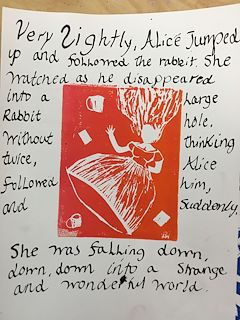 Very Lightly, Alice Jumped
up and followed the rabbit. She
watched as he disappeared
into a large
Rabbit hole,
without thinking
twice, Alice
followed him,
and Suddenly,
She was falling down,
down, down into a strange
and wonderful world.